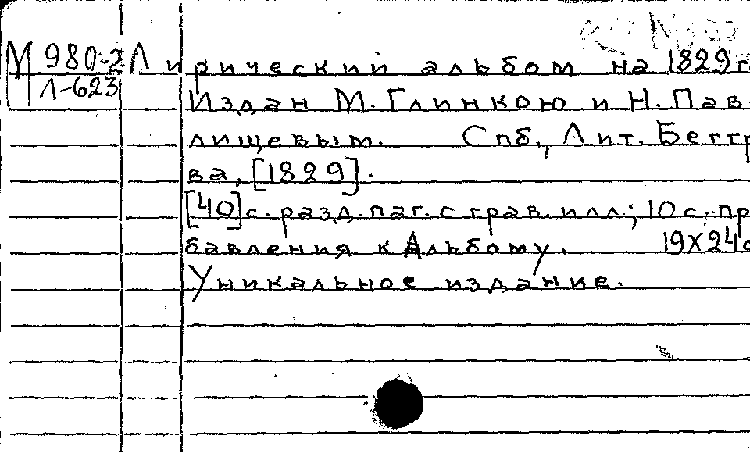 М 980-2 Лирический альбом на 1829 г
Л-623
Издан М. Глинкою и Н. Пав
лищевым. Спб., Лит. Беггр
ва, [1829].
[40] с. разд. паг. с грав. илл.; 10 с. пр
бавления к Альбому. 19х24с
Уникальное издание.